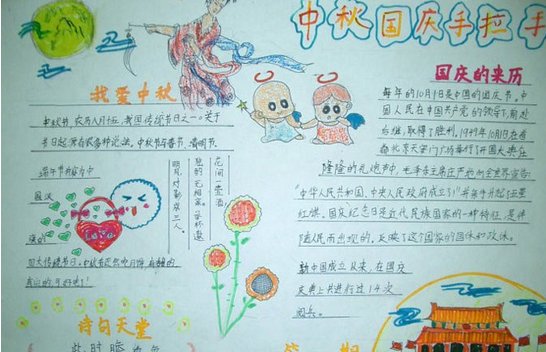 中秋国庆手拉手
我爱中秋
中秋节,农历八月十五,我国传统节日之一。关于
节日起源有很多种说法,中秋节与春节、清明节、
端午节并称为中
国汉
族的
四大传统节日。
花间一壶酒,
独酌无相亲。举杯邀
明月,对影成三人。
诗句天堂
国庆的来历
每年的10月1日是中国的国庆节。中
国人民在中国共产党的领导下,前赴
后继,取得了胜利。1949年10月1日在首
都北京天安门广场举行了开国大典在
隆隆的礼炮声中,毛泽东主席庄严地向全世界宣告
"中华人民共和国,中央人民政府成立了!"并亲手升起了五星
红旗。国庆纪念日是近代民族国家的一种特征,是伴
随人民而出现的,反映了这个国家的国体和政体。
新中国成立以来,在国庆
庆典上共进行过14次
阅兵。